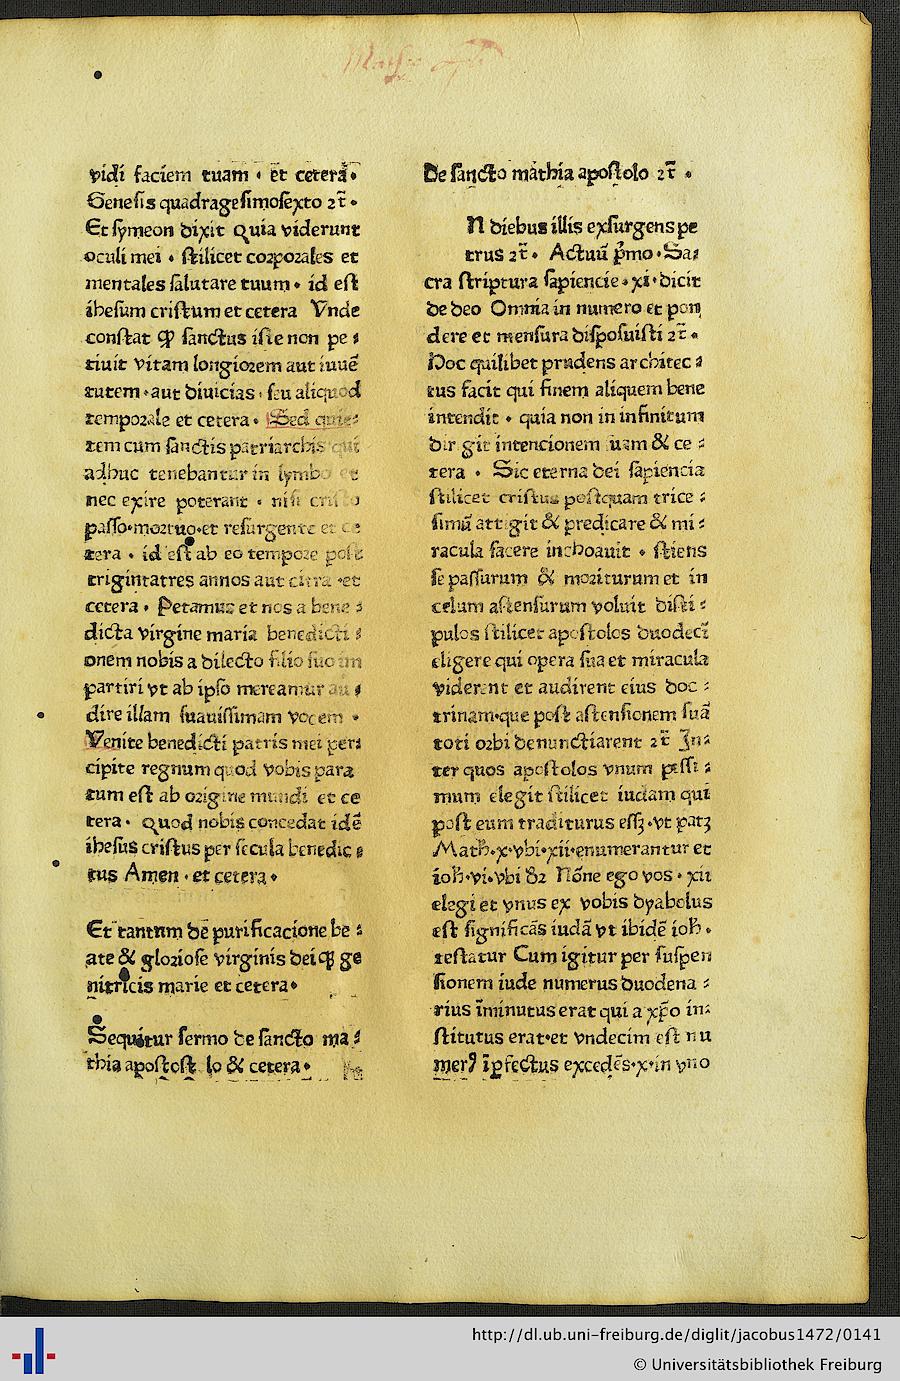 vidi faciem tuam · et ceterā·
Genesis quadragesimosexto ꝛc̄·
Et symeon dixit Quia viderunt
oculi mei · scilicet corporales et
mentales salutare tuum· id est
ihesum cristum et cetera Vnde
constat ꝙ sanctus iste non pe⸗
tiuit vitam longiorem aut iuuē
tutem·aut diuicias· seu aliquod
temporale et cetera· Sed quie⸗
tem cum sanctis patriarchis qui
adhuc tenebantur in lymbo et
nec exire poterant · nisi cristo
passo·mortuo·et resurgente et ce
tera · id est ab eo tempore post
trigintatres annos aut citra ·et
cetera· Petamus et nos a bene⸗
dicta virgine maria benedicti⸗
onem nobis a dilecto filio suo im
partiri vt ab ipso mereamur au⸗
dire illam suauissimam vocem ·
Venite benedicti patris mei per⸗
cipite regnum quod vobis para
tum est ab origine mundi et ce
tera· Quod nobis concedat idē
ihesus cristus per secula benedic⸗
tus Amen·et cetera·
Et tantum dē purificacione be⸗
ate & gloriose virginis dei ꝙ ge
nitricis marie et cetera·
Sequitur sermo de sancto ma⸗
thia apostost lo & cetera·
De sancto mathia apostolo ꝛc̄ ·
N diebus illis exsurgens pe
trus ꝛc̄· Actuū p̄mo·Sa⸗
cra scriptura sapiencie·xi·dicit
de deo Omnia in numero et pon
dere et mensura disposuisti ꝛc̄·
Hoc quilibet prudens architec⸗
tus facit qui finem aliquem bene
intendit · quia non in infinitum
dirigit intencionem suam & ce⸗
tera · Sic eterna dei sapiencia
scilicet cristus postquam trice⸗
simū attigit & predicare & mi⸗
racula facere inchoauit · sciens
se passurum & moriturum et in
celum ascensurum voluit disci⸗
pulos scilicet apostolos duodecī
eligere qui opera sua et miracula
viderent et audirent eius doc⸗
trinam·que post ascensionem suā
toti orbi denunctiarent ꝛc̄ In⸗
ter quos apostolos vnum pessi⸗
mum elegit scilicet iudam qui
post eum traditurus essꝫ·vt patꝫ
Math·x·vbi·xii·enumerantur et
ioh·vi·vbi dꝛ Nōne ego vos·xii
elegi et vnus ex vobis dyabolus
est significās iudā vt ibidē ioh·
testatur Cum igitur per suspen
sionem iude numerus duodena⸗
rius īminutus erat qui a xp̄o in⸗
stitutus erat·et vndecim est nu
merꝰ īperfectus excedēs·x·in vno
http://dl.ub.uni-freiburg.de/diglit/jacobus1472/0141
© Universitätsbibliothek Freiburg